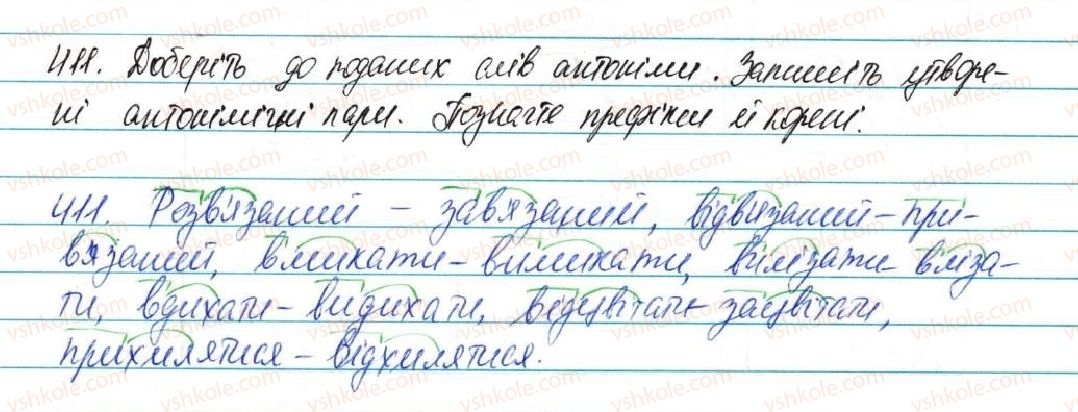 411. Доберіть до поданих слів антоніми. Запишіть утворе-
ні антонімічні пари. Позначте префікси й корені.
411. Розв'язаний - зав'язаний, відв'язаний - при-
в'язаний, вмикати - вимикати, вилізати - вліза-
ти, вдихати - видихати, відцвітати - зацвітати,
прихилятися - відхилятися.